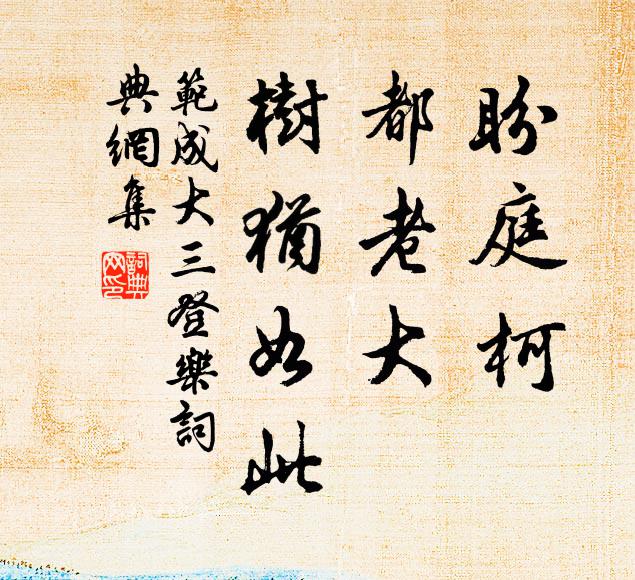 盼庭柯
都老大
樹猶如此
範成大三登樂詞
典網集
詞典網印